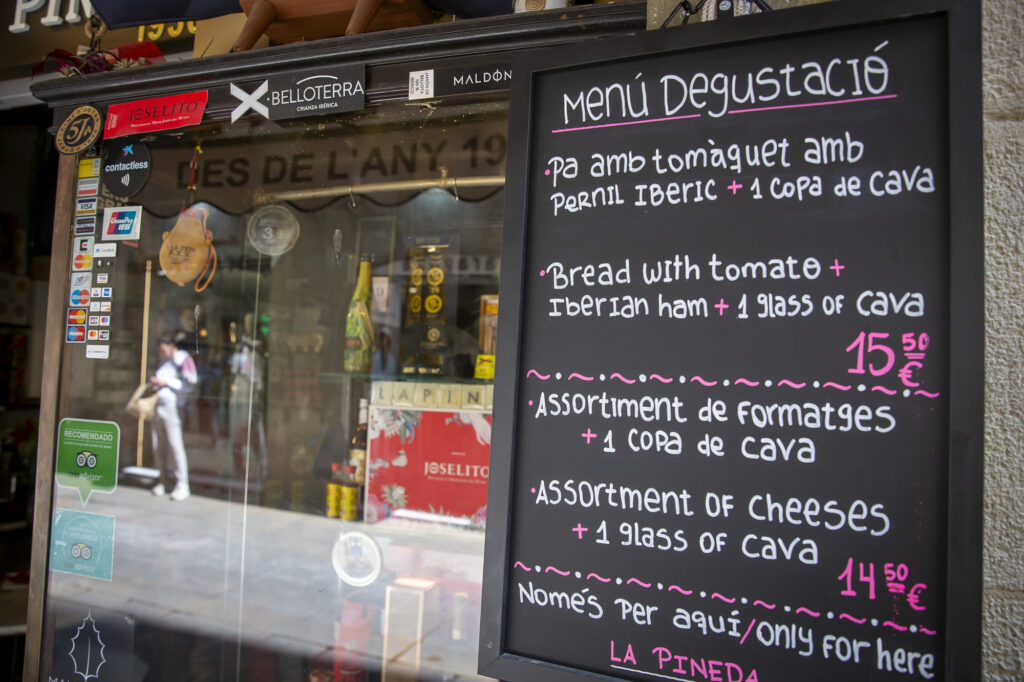 PIN
1930
JOSELITO
BELLOTERRA
CRIANZA IBÉRICA
MALDÓN
5J
contactless
DES DE L'ANY 19
VISA
UnionPay
LAPIN
JOSELITO
RECOMENDADO
tripadvisor
Menú Degustació
·Pa amb tomàquet amb
Pernil Iberic + 1 copa de cava
·Bread with tomato +
Iberian ham + 1 glass of cava
15,50 €
·Assortiment de formatges
+ 1 copa de cava
·Assortment of cheeses
+ 1 glass of cava
14,50 €
Només per aquí/only for here
LA PINEDA